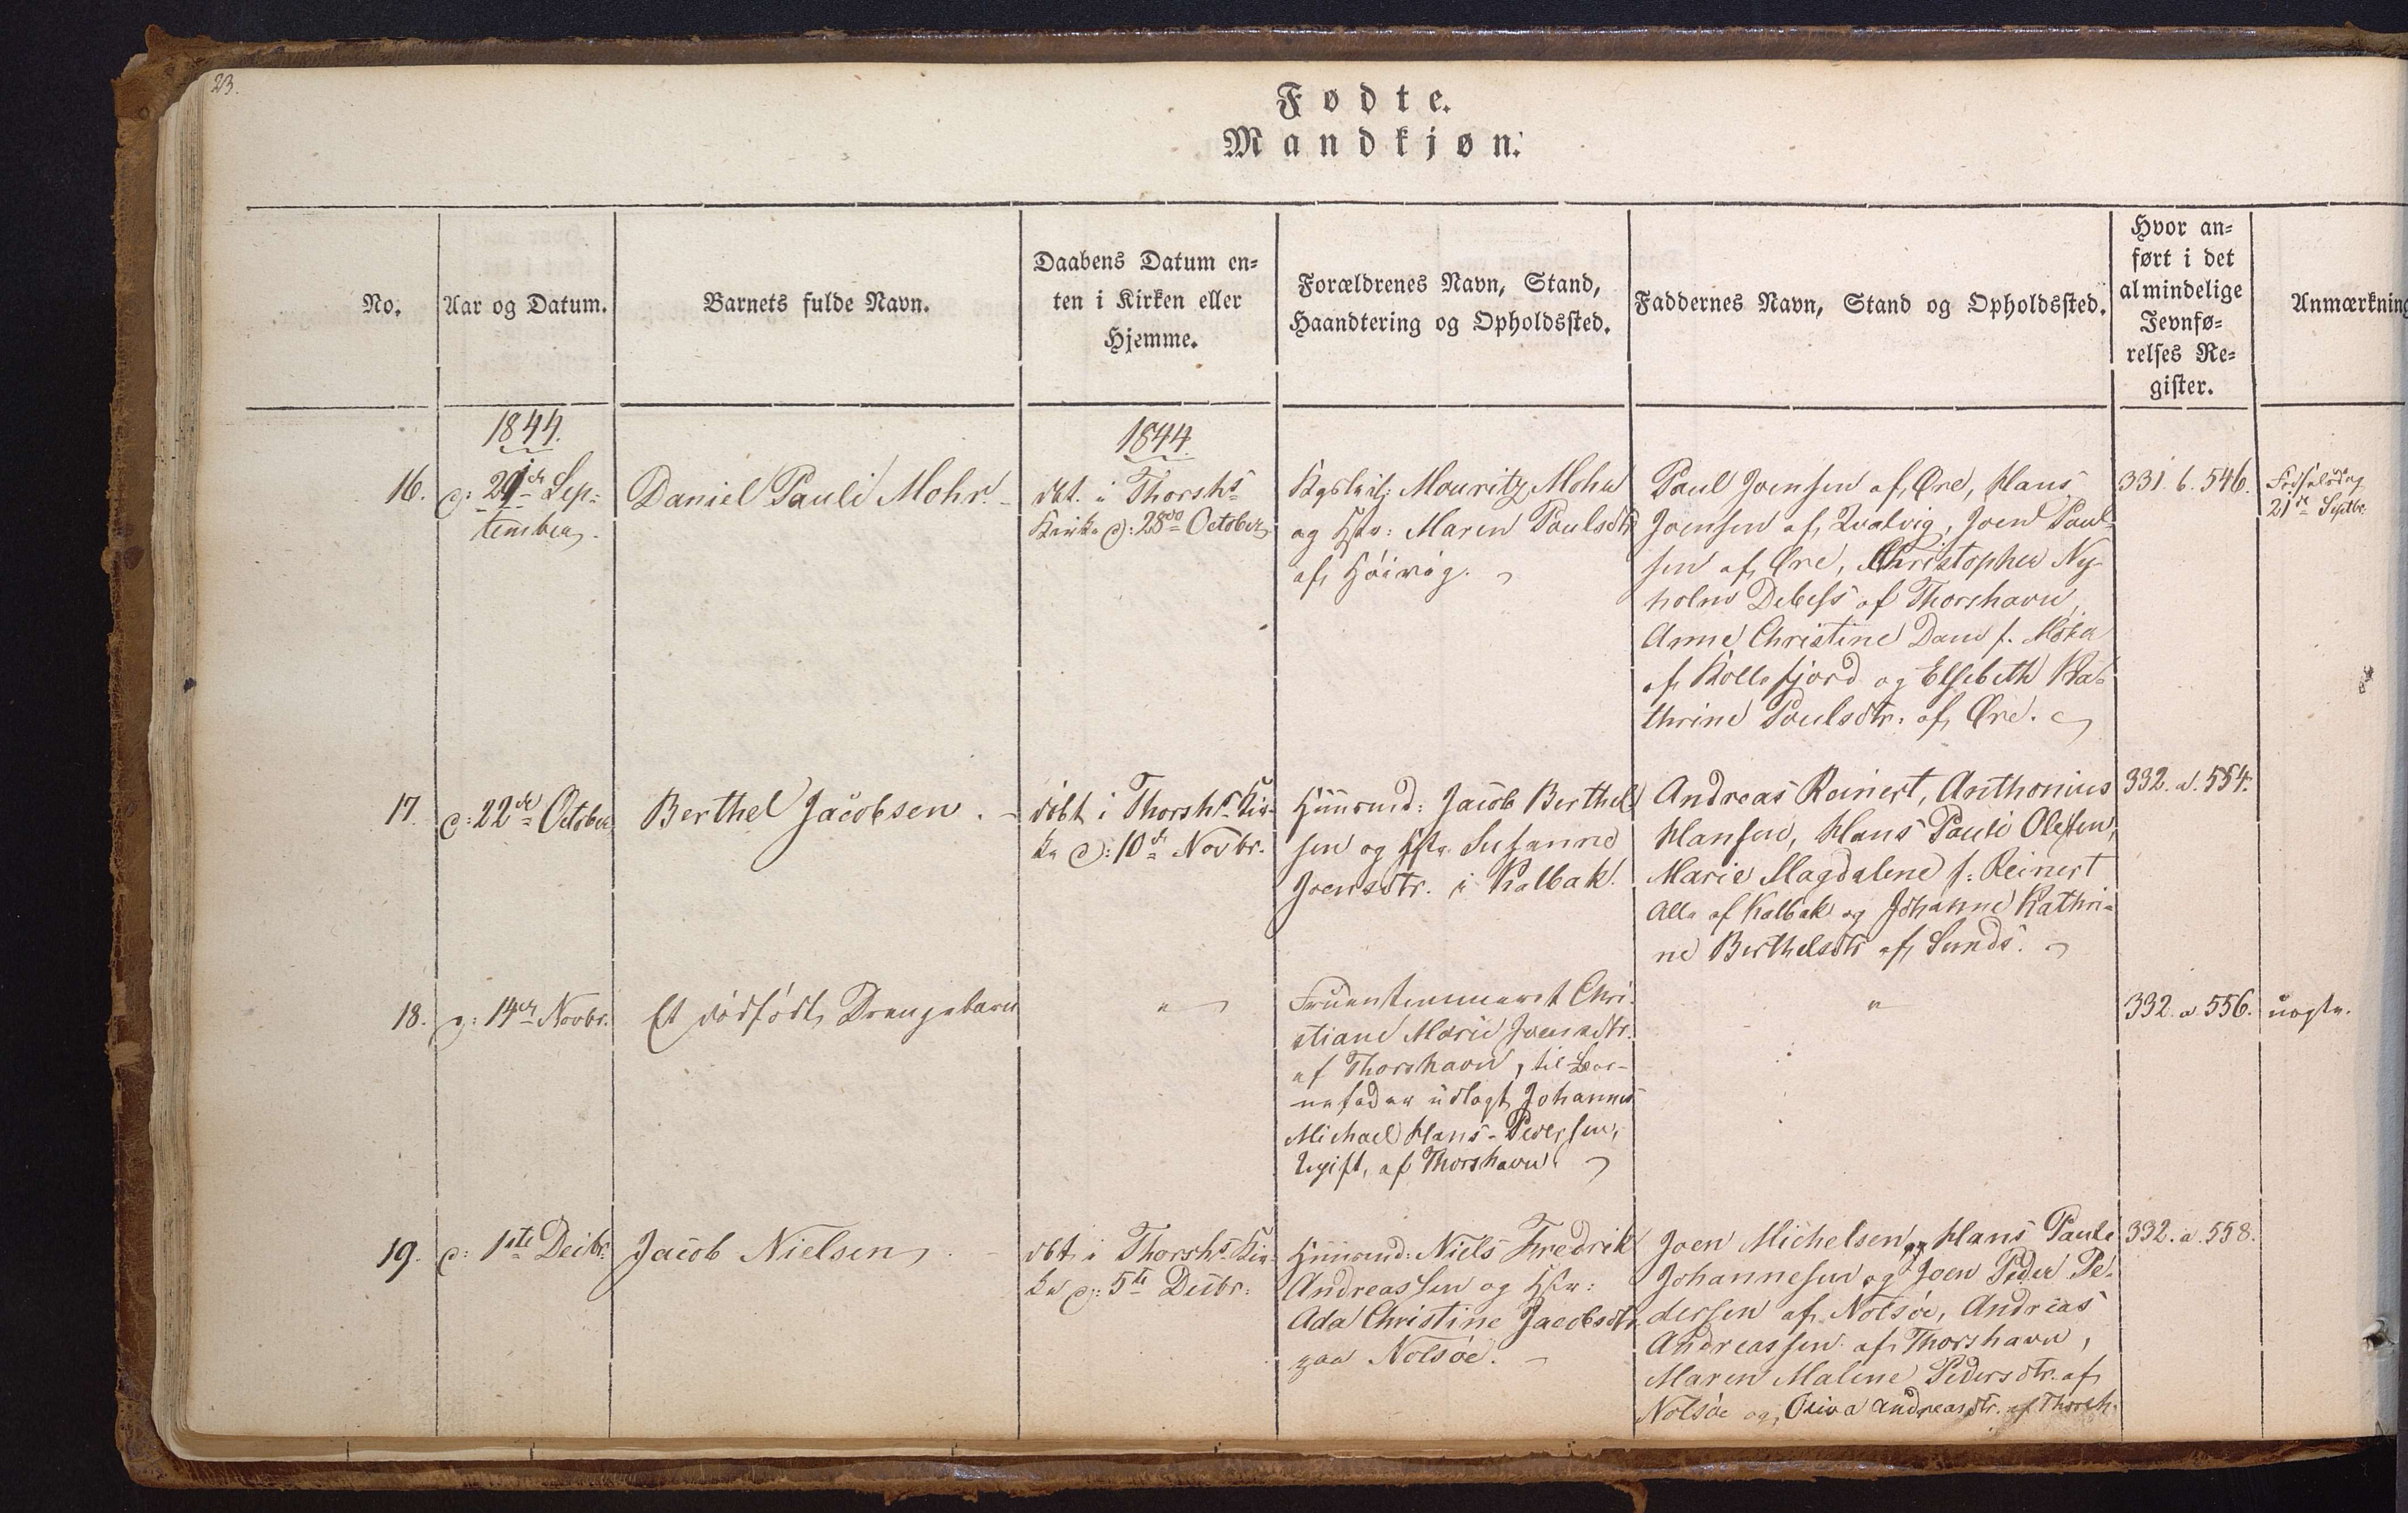 23.
Fødte.
Mandkjøn.
No.
Aar og Datum.
Barnets fulde Navn.
Daabens Datum en-
ten i Kirken eller
Hjemme.
Forældrenes Navn, Stand,
Haandtering og Opholdssted.
Faddernes Navn, Stand og Opholdssted.
Hvor an-
ført i det
almindelige
Jevnfø-
relses Re-
gister.
Anmærkning
1844.
1844.
16.
d: 21de Sep-
tember.
Daniel Pauli Mohr.
dbt. i Thorshs
Kirke d: 28de October
Mouritz Mohr
og Hstr: Maren Poulsdtr
af Hóivig.
Paul Joensen af Øre, Hans
Joensen af Qvalvig, Joen Paul-
sen af Øre, Christopher Ny-
holm Debess af Thorshavn,
Anne Christine Dam f. Mohr
af Kollefjord og Elsebeth Ka-
thrine Poulsdtr. af Øre.
331. b. 546.
Fødselsdag
21de Septbr.
17.
d: 22de October
Berthel Jacobsen.
døbt i Thorshs Kir-
ke d: 10de Novbr.
Huusmd: Jacob Berthel-
sen og Hstr. Susanne
Joensdtr. i Kalbak.
Andreas Reinert, Anthonius
Hansen, Hans Pauli Olesen,
Marie Magdalene f: Reinert
Alle af Kalbak og Johanne Kathri-
ne Berthelsdtr af Sunds.
332. a. 554.
18.
d: 14de Novbr.
Et dødfødt Drengebarn
"
Fruentimmeret Chri-
stiane Marie Joensdtr.
af Thorshavn, til Bar-
nefader udlagt Johannes
Michael Hans-Pedersen,
Ugift, af Thorshavn.
"
332. a. 556.
uægte.
19.
d: 1ste Decbr.
Jacob Nielsen
dbt i Thorshs Kir-
ke d: 5te Decbr.
Huusmd: Niels Fredrik
Andreassen og Hstr:
Ada Christine Jacobsdtr.
paa Nolsøe.
Joen Michelsen, Hans Pauli
Johannesen og Joen Peder Pe-
dersen af Nolsøe, Andreas
Andreassen af Thorshavn,
Maren Malene Pedersdtr. af
Nolsøe og Andreasdtr. af Thorsh.
332. a. 558.